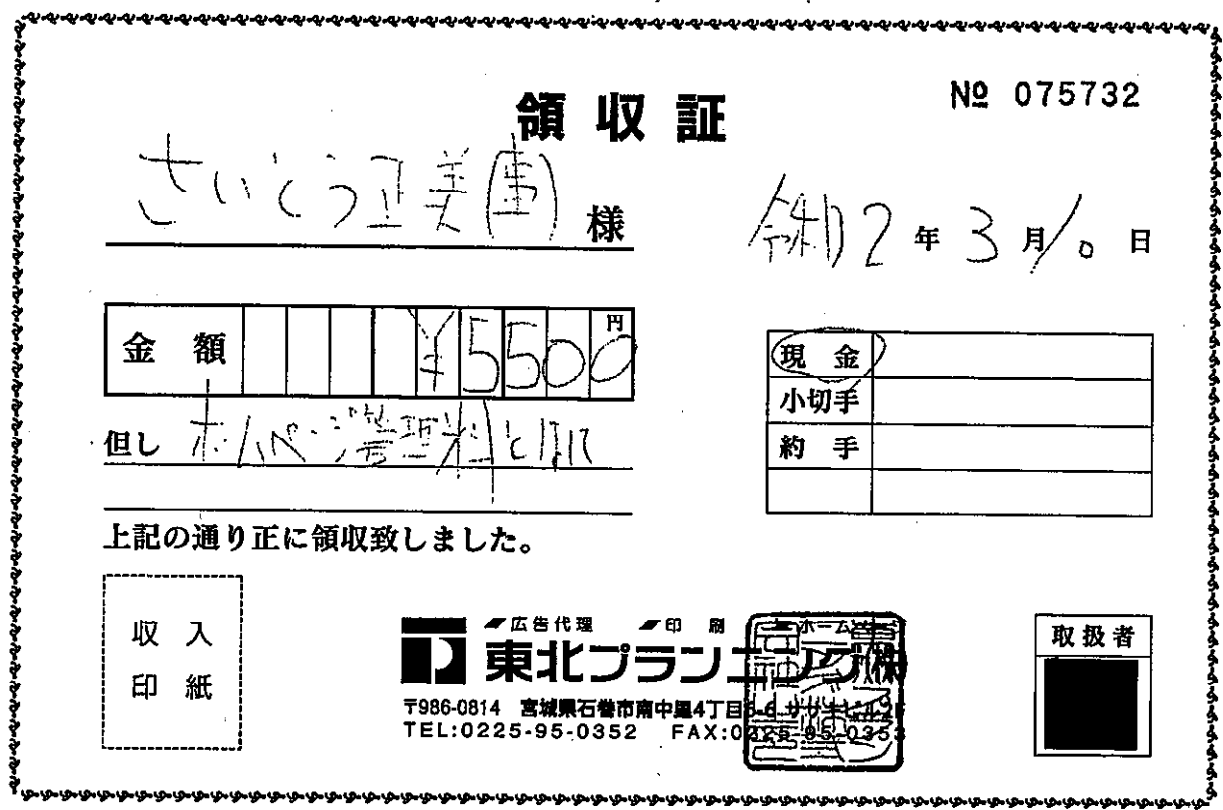 領収証
№ 075732
さいとう正美(事) 様
令和2年3月10日
金額 ¥5500円
現金
小切手
約手
但し ホームページ管理料として
上記の通り正に領収致しました。
収入
印紙
広告代理 印刷 ホーム
東北プランニング㈱
〒986-0814 宮城県石巻市南中里4丁目
TEL:0225-95-0352 FAX:0225-95-0353
取扱者